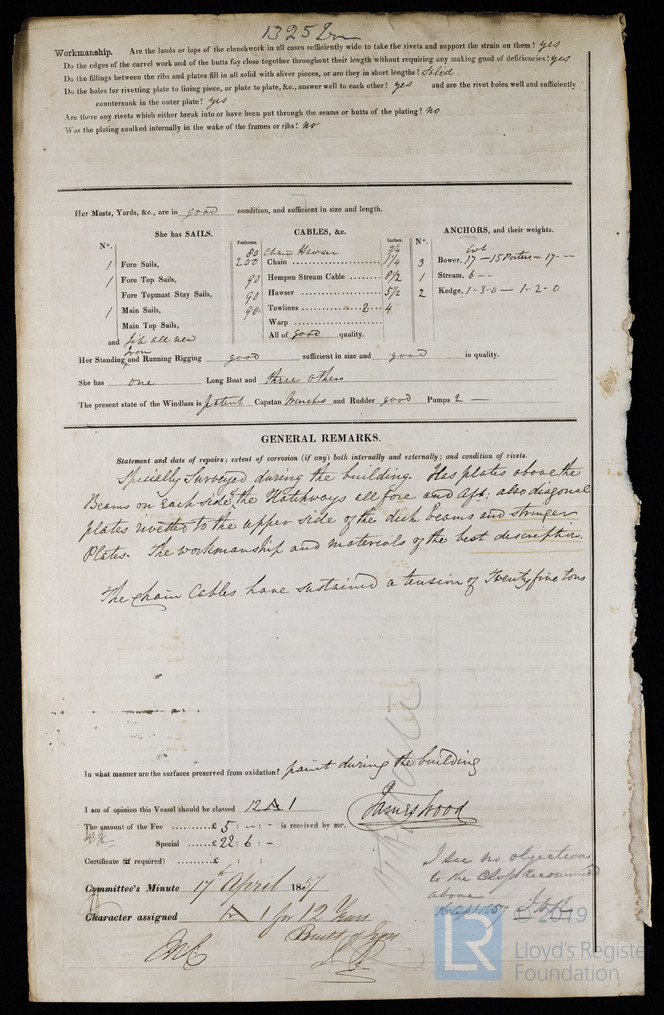 1325 Iron
Workmanship. Are the lands or laps of the clenchwork in all cases sufficiently wide to take the rivets and support the strain on them? yes
Do the edges of the carvel work and of the butts fay close together throughout their length without requiring any making good of deficiencies? yes
Do the fillings between the ribs and plates fill in all solid with sliver pieces, or are they in short lengths? Solid.
Do the holes for rivetting plate to lining piece, or plate to plate, &c., answer well to each other? yes and are the rivet holes well and sufficiently
countersunk in the outer plate? yes
Are there any rivets which either break into or have been put through the seams or butts of the plating? no
Was the plating caulked internally in the wake of the frames or ribs? no
Her Masts, Yards, &c., are in good condition, and sufficient in size and length.
She has SAILS. CABLES, &c. ANCHORS, and their weights.
N°. Fathoms. Inches. N°.
80 Chain Hawser 3/4 Cwt
1 Fore Sails, 200 Chain 1 1/4 3 Bower, 17 - 15 Porters - 17 - -
1 Fore Top Sails, 90 Hempen Stream Cable 8 1/2 1 Stream, 6 - -
Fore Topmast Stay Sails, 90 Hawser 5 1/2 2 Kedge, 1-3-0 - 1-2-0
1 Main Sails, 90 Towlines 2 4
Main Top Sails, Warp
and Jib all new All of good quality.
Iron
Her Standing and Running Rigging good sufficient in size and good in quality.
She has one Long Boat and three others
The present state of the Windlass is patent Capstan Winches and Rudder good Pumps 2 -
GENERAL REMARKS.
Statement and date of repairs; extent of corrosion (if any) both internally and externally; and condition of rivets.
Specially Surveyed during the building. Has plates above the
Beams on each side of the Hatchways all fore and aft; also diagonal
plates rivetted to the upper side of the deck beams and stringer
Plates. The workmanship and materials of the best description.
The Chain Cables have sustained a tension of Twenty five tons
In what manner are the surfaces preserved from oxidation? paint during the building
I am of opinion this Vessel should be classed 12 A 1
The amount of the Fee £ 5 : - : - is received by me, James Wood
Special £ 22 : 6 : -
Certificate (if required) £ : :
I see no objection
to the Class recommend
above
Committee's Minute 17th April 1857
16 Apl 1857
Character assigned A 1 for 12 Years
Built of Iron
© 2019
LR
Lloyd's Register
Foundation